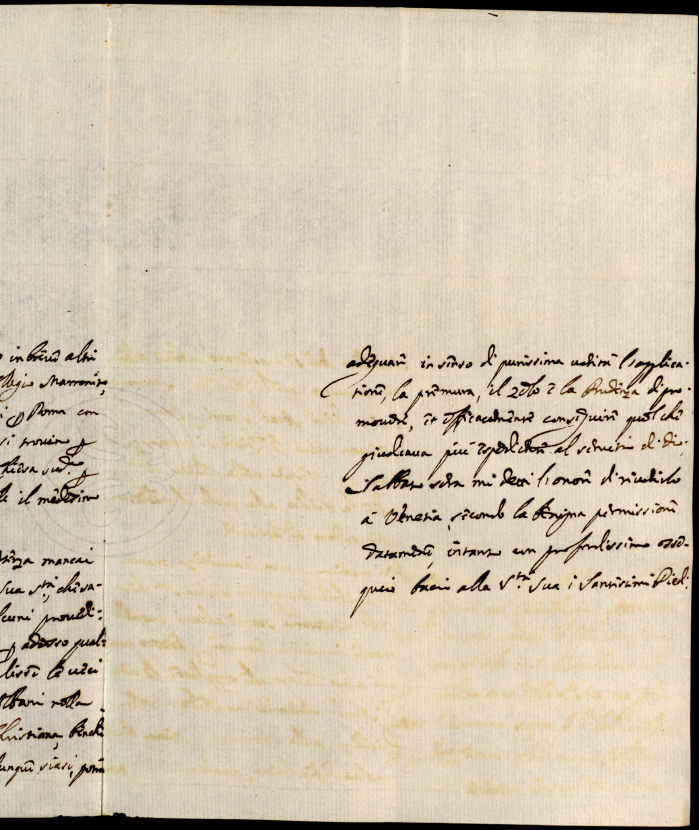 in breve altri
Collegio Marronita,
Roma con
si trovino p
Chiesa sud.ª p
il medesimo
mancai
sua S.tà, che sa-
alcuni provedi-
p adesso qual-
le veci
Albani nella
Christiana,
siasi,
adeguare in senso di purissima verità l'applica-
tione, la premura, il zelo e la Prudenza di pro-
movere, et efficacemente conseguire quel che
giudicava più espediente al servitio di Dio.
Sabbato sera mi detti l'onore di riverirlo
à Venetia, secondo la benigna permissione
datamene, intanto con profondissimo osse-
quio bacio alla S.tà Sua i Santissimi Piedi.